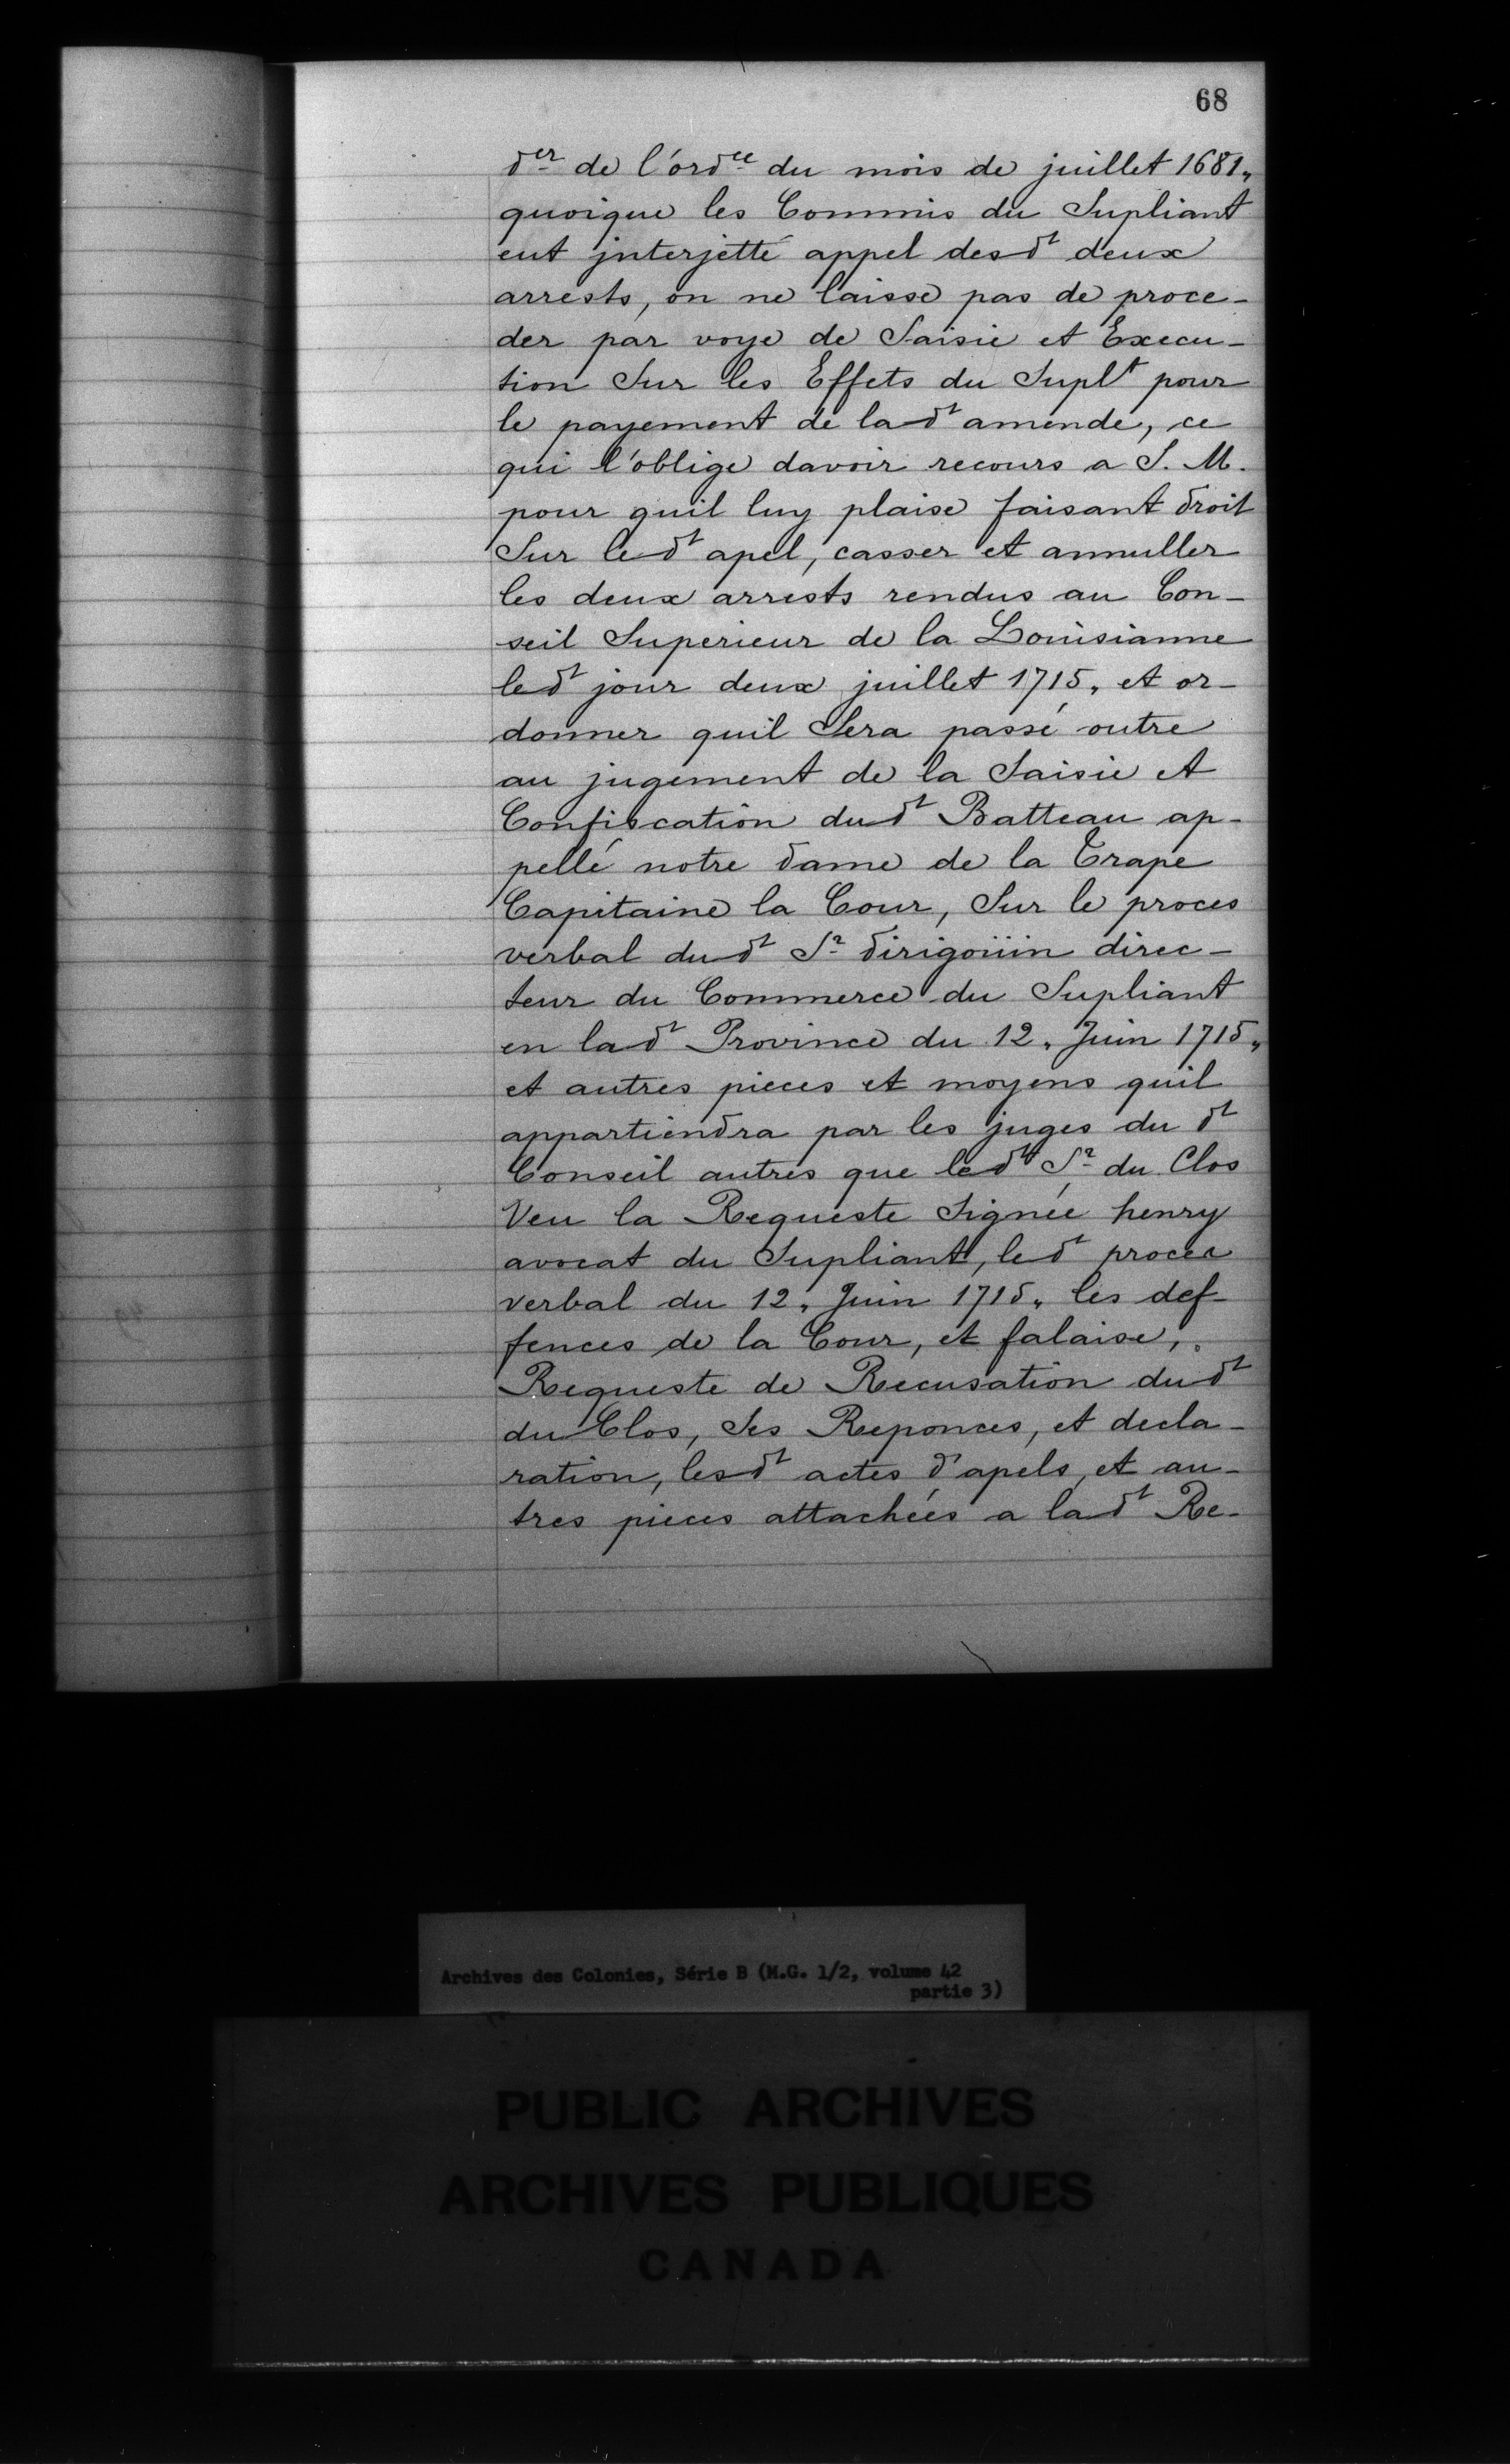 68
der de l'ordce du mois de juillet 1681,
quoique les Commis du Supliant
eut jnterjetté appel desdt deux
arrests, on ne laisse pas de proce-
der par voye de Saisie et Execu-
tion Sur les Effets du Suplt pour
le payement de ladt amende, ce
qui l'oblige davoir recours a S. M.
pour quil luy plaise faisant droit
Sur ledt apel, casser et annuller
les deux arrests rendus au Con-
seil Superieur de la Louisianne
ledt jour deux juillet 1715, et or-
donner quil Sera passé outre
au jugement de la Saisie et
Confiscation dudt Batteau ap-
pellé notre dame de la Trape
Capitaine la Cour, Sur le proces
verbal dudt Sr dirigoüin direc-
teur du Commerce du Supliant
en ladt Province du 12, Juin 1715,
et autres pieces et moyens quil
appartiendra par les juges du dt
Conseil autres que ledt Sr du Clos
Veu la Requeste Signée henry
avocat du Supliant, ledt proces
verbal du 12, Juin 1715, les def-
fences de la Cour, et falaise,
Requeste de Recusation dudt
du Clos, Ses Reponces, et decla-
ration, lesdt actes d'apels, et au-
tres pieces attachées a ladt Re-
Archives des Colonies, Série B (M.G. 1/2, volume 42
partie 3)
PUBLIC ARCHIVES
ARCHIVES PUBLIQUES
CANADA